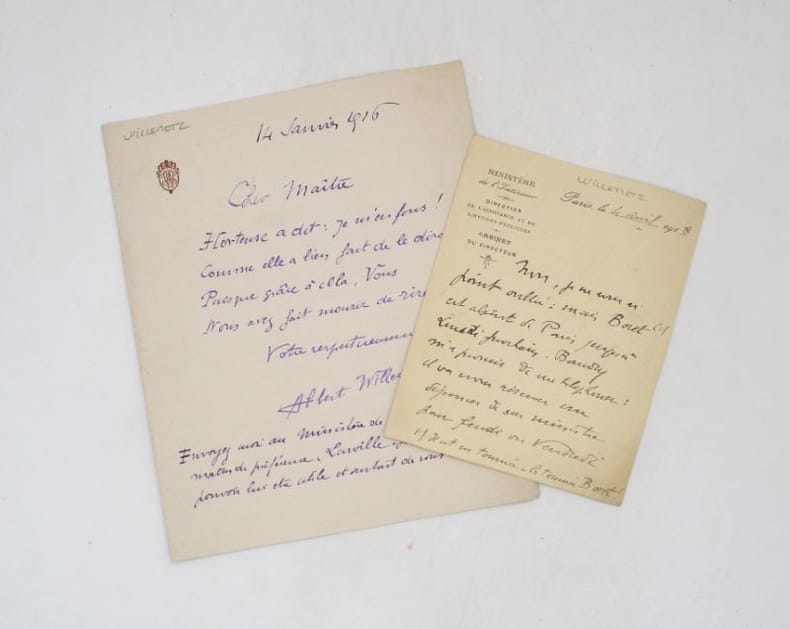 WILLEMETZ
14 Janvier 1916
Cher Maître
Hortense a dit : je m'en fous !
Comme elle a bien fait de le dire
Puisque grâce à ella, Vous
Nous avez fait mourir de rire
Votre respectueusement
Albert Willem
Envoyez moi au Ministère de
matin de préférence, Larville
pouvoir lui être utile et surtout de vous
WILLEMETZ
MINISTÈRE
de l'Intérieur
DIRECTION
DE L'ASSISTANCE ET DE
L'HYGIÈNE PUBLIQUES
CABINET
DU DIRECTEUR
Paris, le 4 Avril 1918
Non, je ne vous ai
point oublié : mais Boret (1)
est absent de Paris jusqu'à
Lundi prochain. Baudry
m'a promis de me téléphoner :
il va vous réserver un
déjeuner à son ministre
pour Jeudi ou Vendredi
(1) Il est en tournée - la tournée Boret